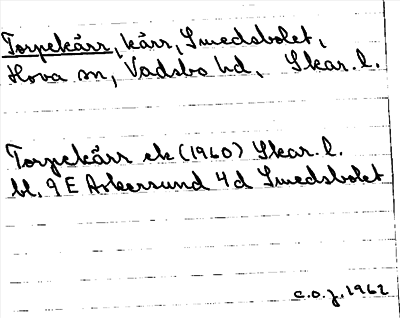 Torpekärr, kärr, Smedsbolet,
Hova sn, Vadsbo hd, Skar. l.
Torpekärr ek (1960) Skar. l.
bl. 9 E Askersund 4 d Smedsbolet
C.O.J. 1962